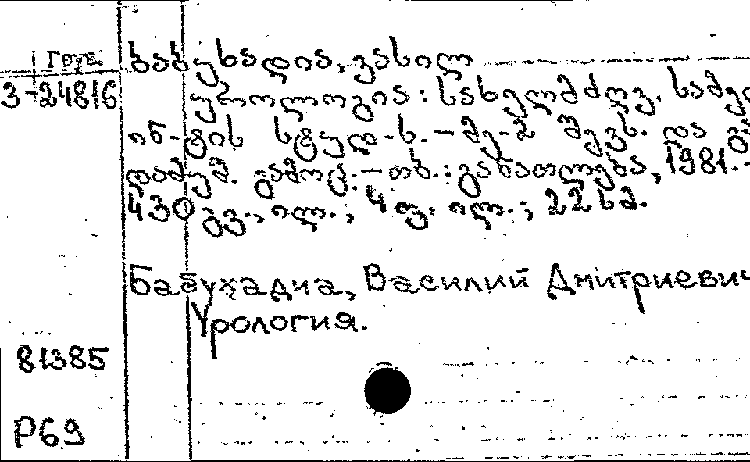 Груз.
3-24816
ბაბუხადია, ვასილ
უროლოგია: სახელმძღვ. სამედ
ინ-ტის სტუდ-ს. - მე-2 შევს. და გ
დამუშ. გამოც. - თბ.: განათლება, 1981. -
430 გვ., ილ., 4 ფ. ილ.; 22 სმ.
Бабухадиа, Василий Дмитриевич
Урология.
81385
Р69